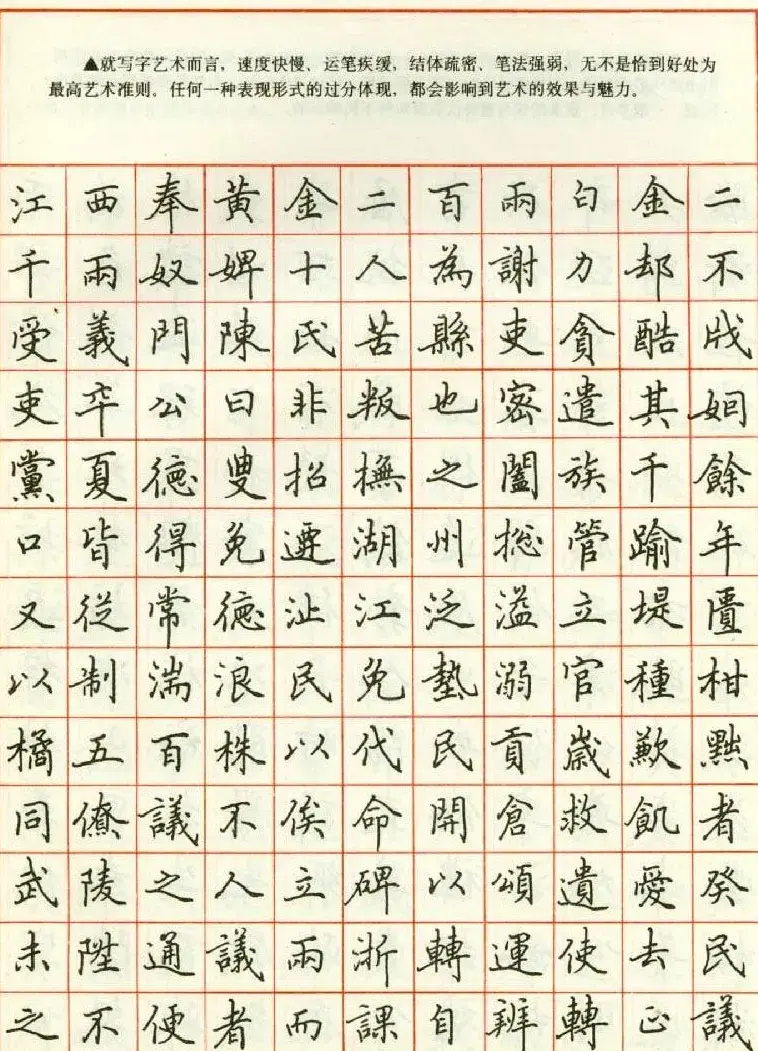 ▲就写字艺术而言，速度快慢、运笔疾缓，结体疏密、笔法强弱，无不是恰到好处为
最高艺术准则。任何一种表现形式的过分体现，都会影响到艺术的效果与魅力。
江西奉黄金二百兩白金二
千兩奴婢十人為謝力却不
受義門陳氏苦縣吏貪酷戕
吏卒公曰非叛也密遣其姻
黨夏德叟招撫之闔族千餘
口皆得免遷湖州捴管踰年
又從常德沚江泛溢立堤匱
以制湍浪民免墊溺官種柑
橘五百株以代民貢歲歉黜
同僚議不俟命開倉救飢者
武陵之人立碑以頌遺愛癸
未陞通議兩浙轉運使去民
之不便者而課自辦轉正議